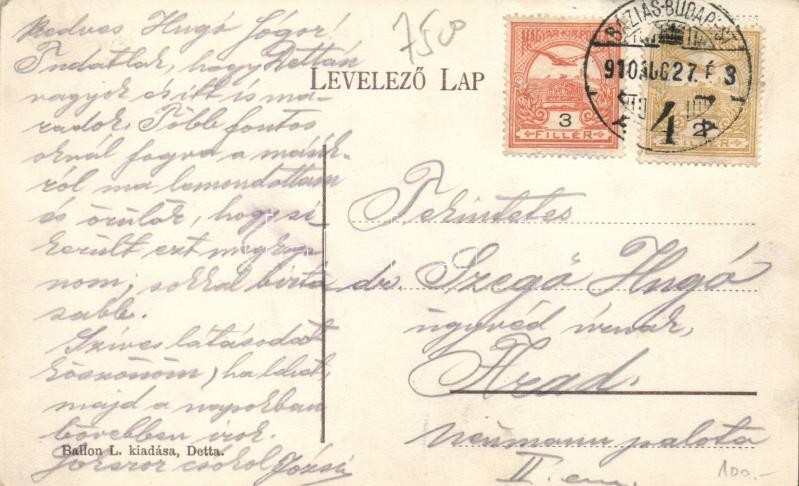 Kedves Hugó Sógor!
Tudatlak, hogy Dettán
vagyok és itt is ma-
radok. Több fontos
oknál fogva a másik-
ról ma lemondottam
és örülök, hogy si-
került ezt megkap-
nom; sokkal
Szíves látásodat
köszönöm, ha lehet,
majd a napokban
bővebben írok.
Sokszor csókol Józsi
Ballon L. kiadása, Detta.
7500
LEVELEZŐ LAP
MAGYAR KIR. POSTA
3
FILLÉR
BÁZIÁS-BUDAPEST
910 AUG 27
4
2
FILLÉR
Tekintetes
dr. Szegő Hugó
ügyvéd úrnak,
Arad.
Neumann palota
II. em.
100.-